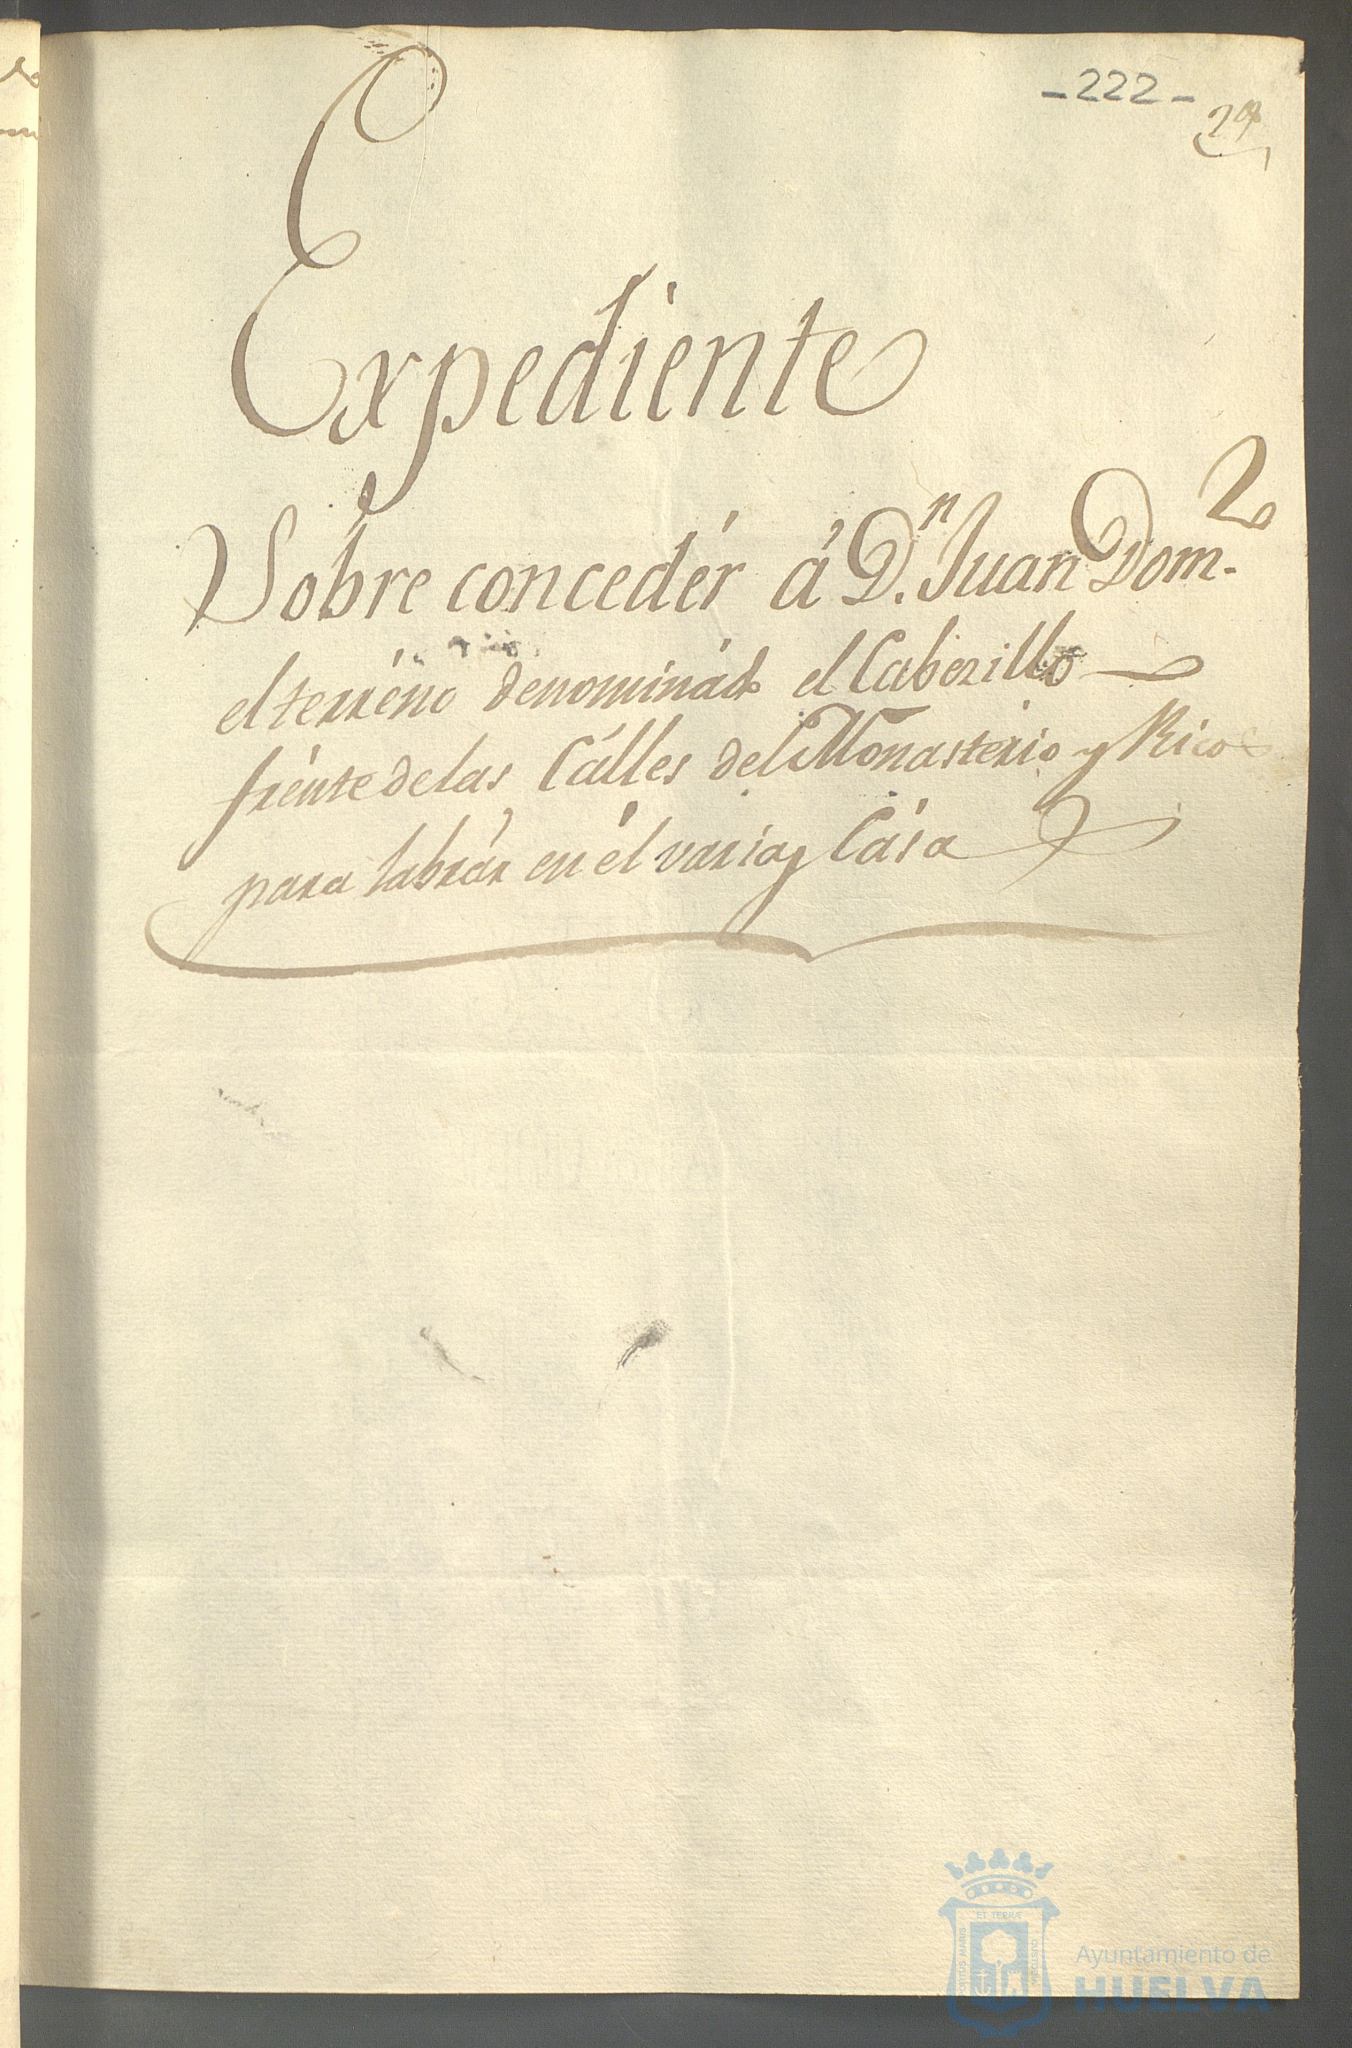 -222-
29
Expediente
Sobre concedér á D.n Juan Dom.z
el terréno denominádo el Cabezillo
frénte de las Cálles del Monasterio y Rico
para labrár en él varias Cása
PORTUS MARIS
ET TERRÆ
CUSTODIA
Ayuntamiento de
HUELVA